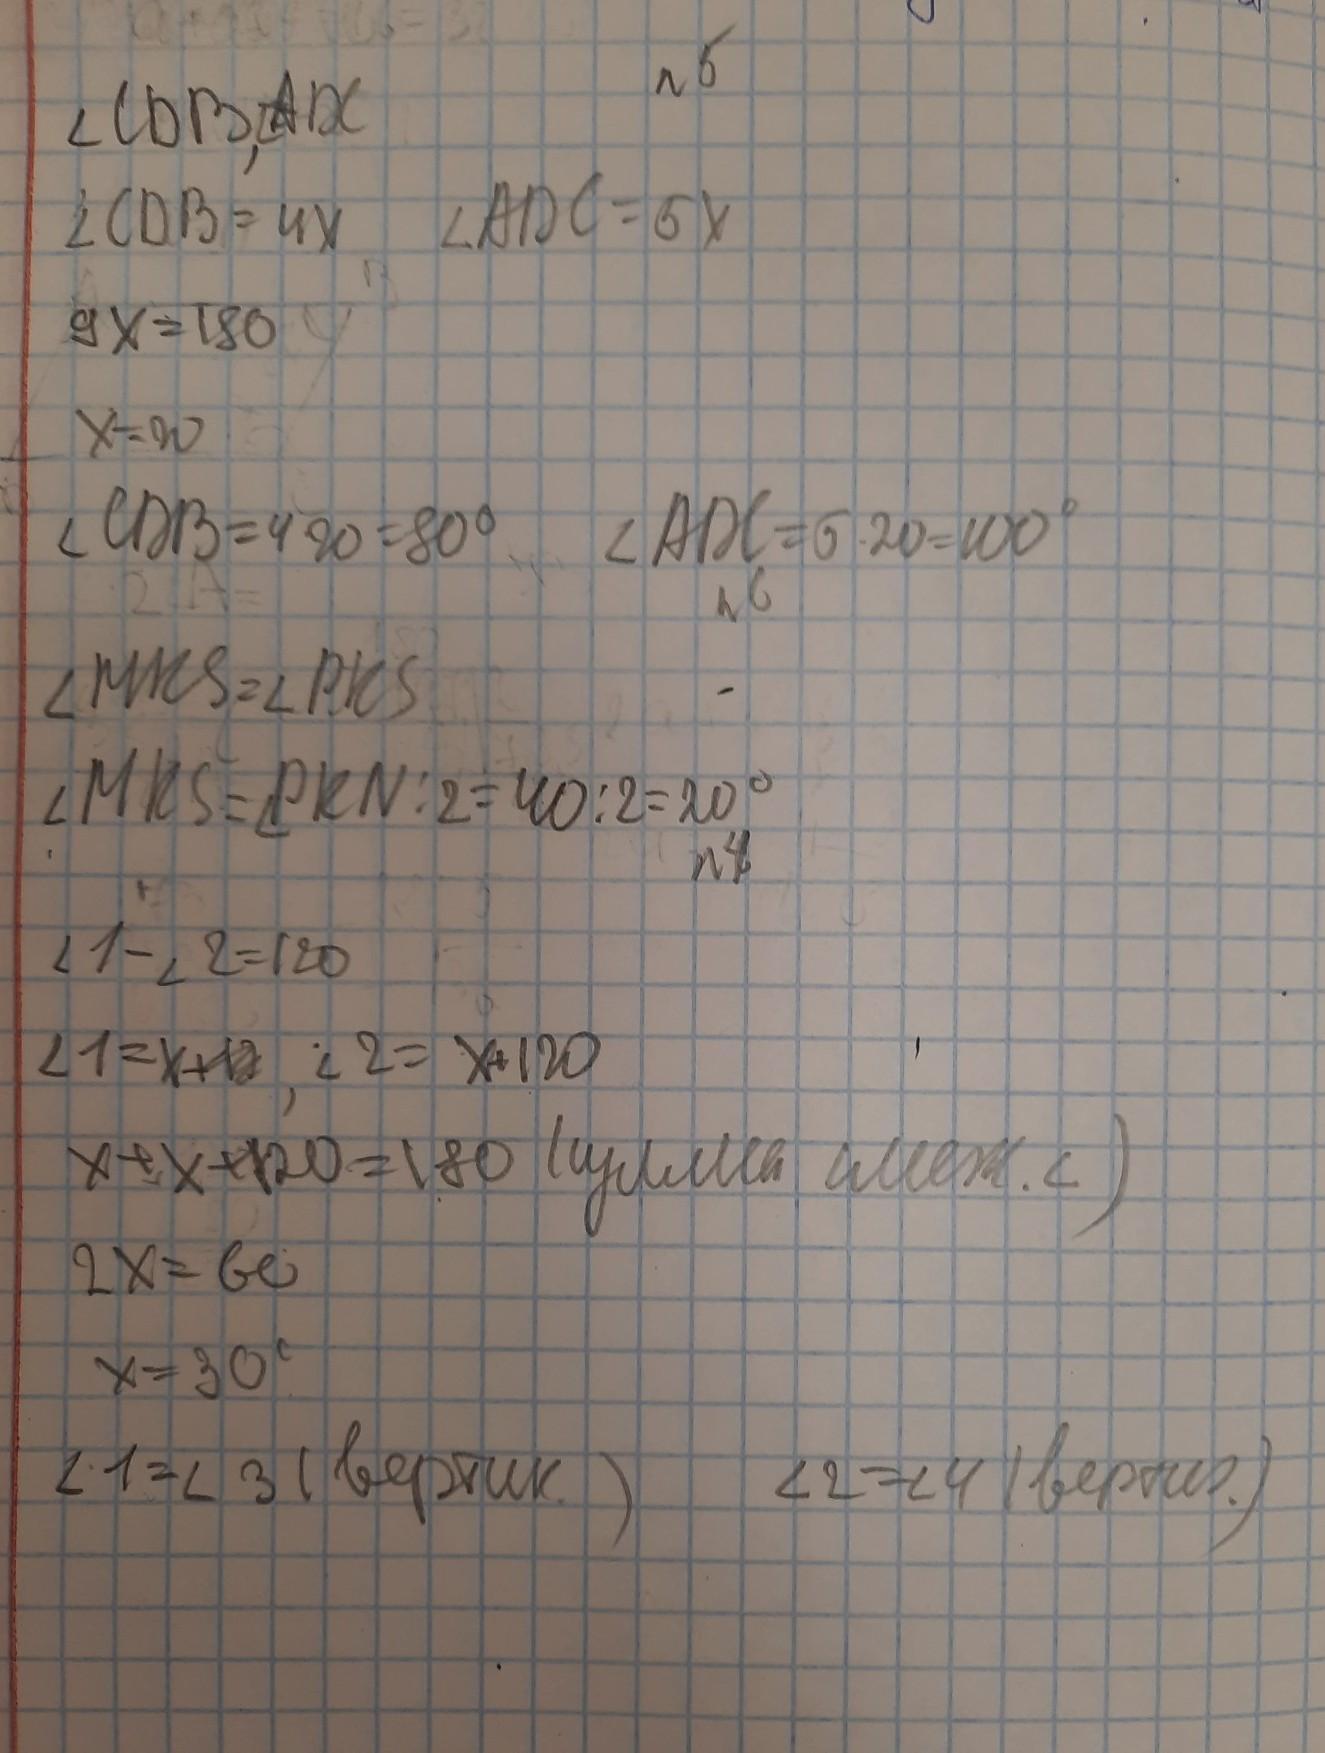 n5
∠CDB, ∠ADC
∠CDB=4x ∠ADC=5x
9x=180
x=20
∠CDB=4 20=80° ∠ADC=5·20=100°
n6
∠MKS=∠PKS
∠MKS=∠PKN:2=40:2=20°
n7
∠1-∠2=120
∠1=x, ∠2= x+120
x+x+120=180 (сумма смеж. ∠)
2x=60
x=30°
∠1=∠3 (вертик.) ∠2=∠4 (вертик.)